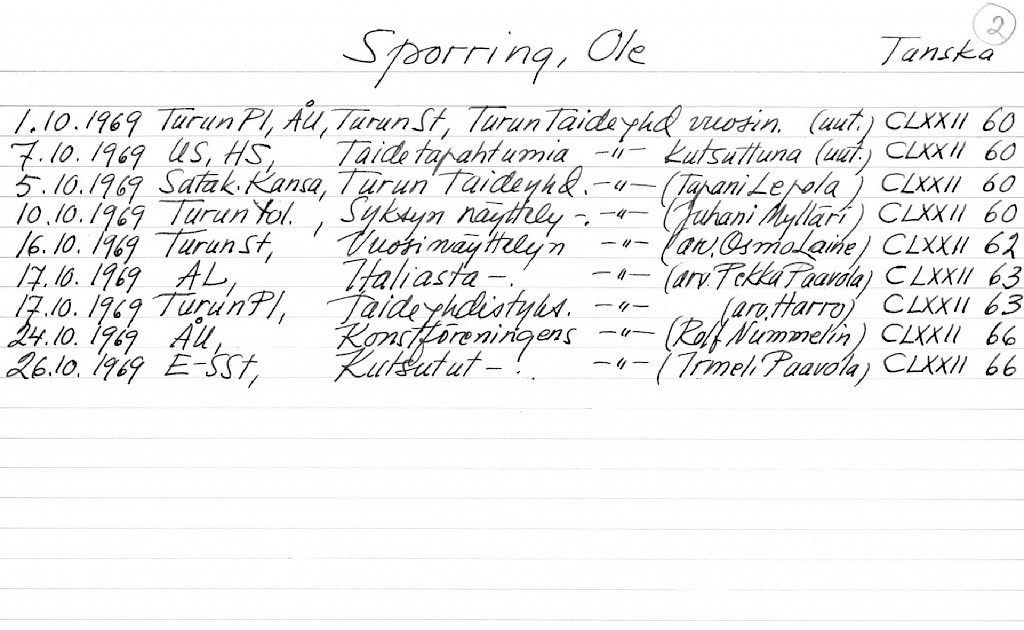 2
Sporring, Ole Tanska
1.10.1969 TurunPl, ÅU, TurunSt, Turun Taideyhd vuosin. (uut.) CLXXII 60
7.10.1969 US, HS, Taidetapahtumia -"- Kutsuttuna (uut.) CLXXII 60
5.10.1969 Satak.Kansa, Turun Taideyhd. -"- (Tapani Lepola) CLXXII 60
10.10.1969 Turun Yol., Syksyn näyttely -. -"- (Juhani Mylläri) CLXXII 60
16.10.1969 TurunSt, Vuosinäyttelyn -"- (arv. Osmo Laine) CLXXII 62
17.10.1969 AL, Italiasta -. -"- (arv. Pekka Paavola) CLXXII 63
17.10.1969 TurunPl, Taideyhdistyks. -"- (arv. Harro) CLXXII 63
24.10.1969 ÅU, Konstföreningens -"- (Rolf Nummelin) CLXXII 66
26.10.1969 E-SSt, Kutsutut - . -"- (Irmeli Paavola) CLXXII 66